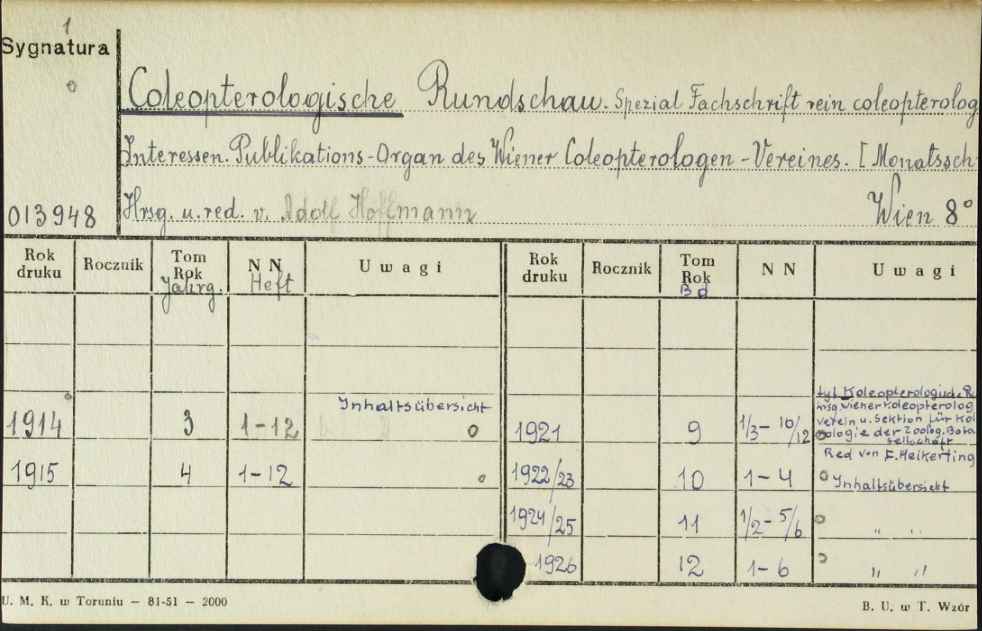 1
Sygnatura
Coleopterologische Rundschau. Spezial Fachschrift rein coleopterolog
Interessen. Publikations-Organ des Wiener Coleopterologen-Vereines. [Monatssch
013948 Hrsg. u. red. v. Adolf Hoffmann Wien 8°
Rok druku Rocznik Tom Rok Jahrg. N N Heft Uwagi Rok druku Rocznik Tom Rok Bd N N Uwagi
1914 3 1-12 Inhaltsübersicht 1921 9 1/3-10/12 tyt. Koleopterologische R
hrsg. Wiener Koleopterolog
Verein u. Sektion für Kol
ologie der Zoolog. Bota
sellschaft
Red von F. Heikerting
1915 4 1-12 1922/23 10 1-4 Inhaltsübersicht
1924/25 11 1/2-5/6 " "
1926 12 1-6 " "
U. M. K. w Toruniu — 81-51 — 2000 B. U. w T. Wzór